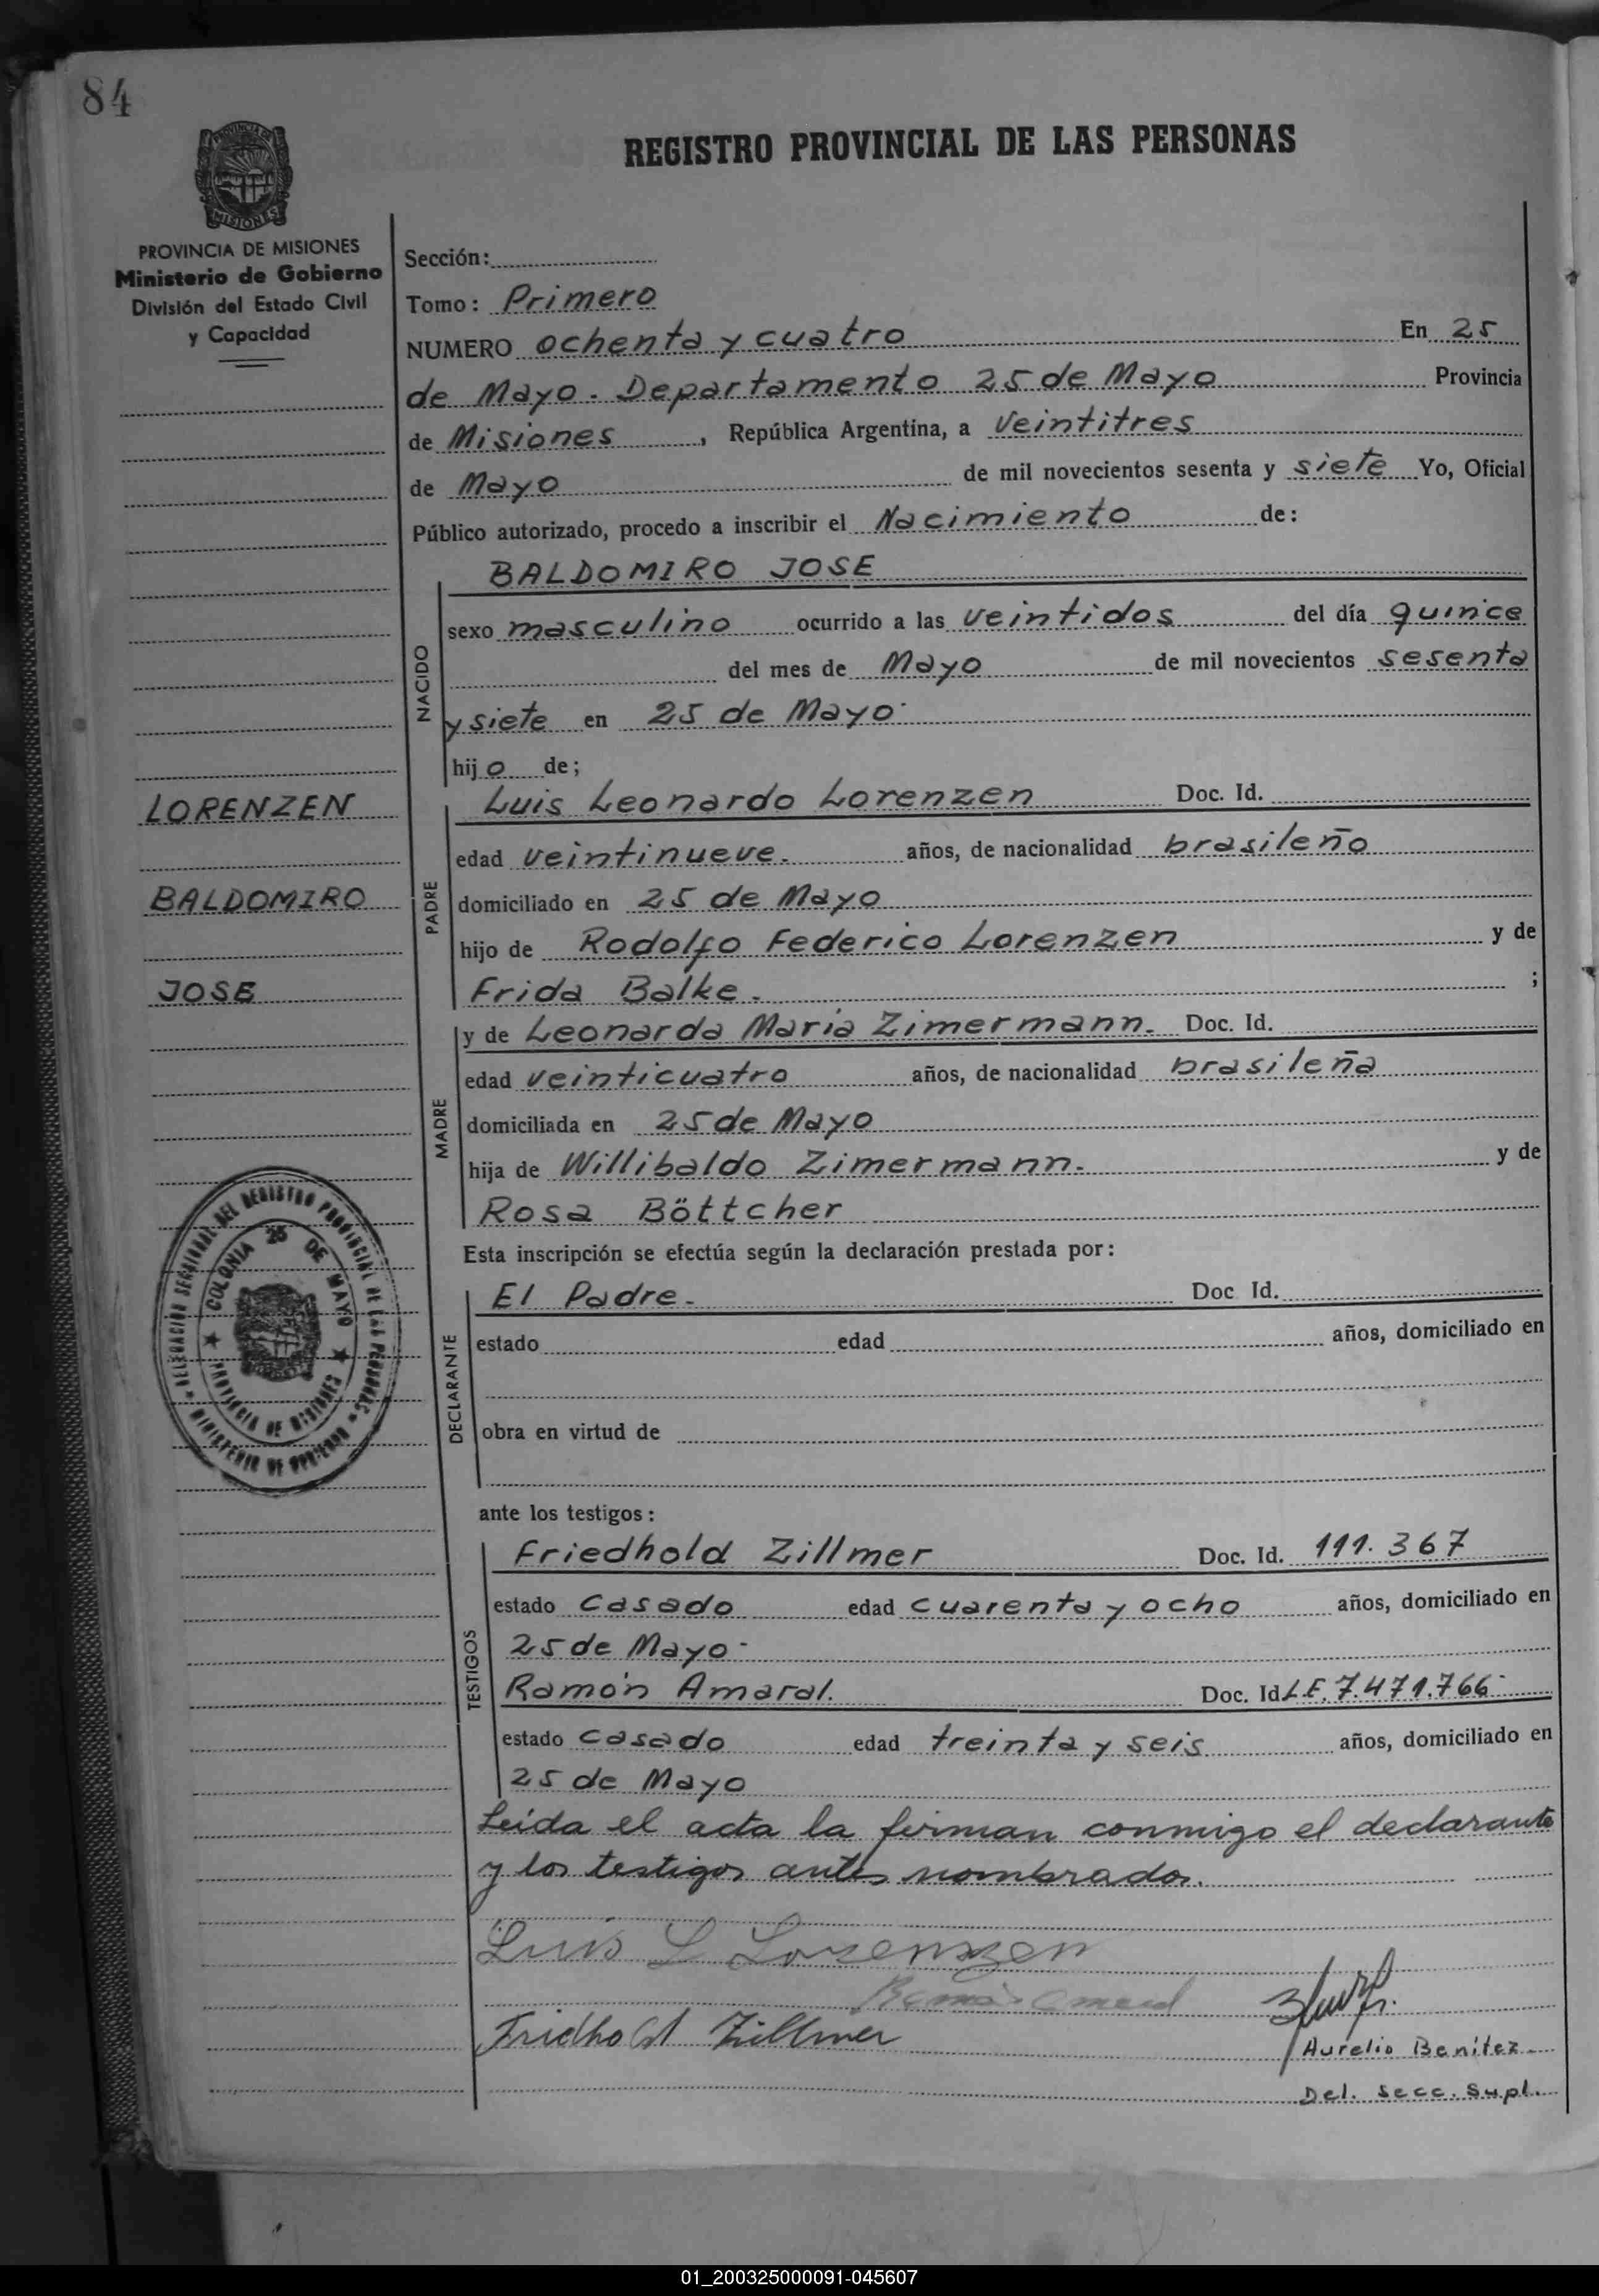 84
REGISTRO PROVINCIAL DE LAS PERSONAS
PROVINCIA DE
MISIONES
PROVINCIA DE MISIONES
Ministerio de Gobierno
División del Estado Civil
y Capacidad
Sección:
Tomo: Primero
NUMERO ochenta y cuatro En 25
de Mayo. Departamento 25 de Mayo Provincia
de Misiones, República Argentina, a veintitres
de Mayo de mil novecientos sesenta y siete Yo, Oficial
Público autorizado, procedo a inscribir el Nacimiento de:
NACIDO
BALDOMIRO JOSE
sexo masculino ocurrido a las veintidos del día quince
del mes de Mayo de mil novecientos sesenta
y siete en 25 de Mayo
hijo de;
LORENZEN
BALDOMIRO
JOSE
PADRE
Luis Leonardo Lorenzen Doc. Id.
edad veintinueve. años, de nacionalidad brasileño
domiciliado en 25 de Mayo
hijo de Rodolfo Federico Lorenzen y de
Frida Balke. ;
MADRE
y de Leonarda Maria Zimermann. Doc. Id.
edad veinticuatro años, de nacionalidad brasileña
domiciliada en 25 de Mayo
hija de Willibaldo Zimermann. y de
Rosa Böttcher
Esta inscripción se efectúa según la declaración prestada por:
DELEGACIÓN SECCIONAL DEL REGISTRO PROVINCIAL DE LAS PERSONAS
MINISTERIO DE GOBIERNO
COLONIA 25 DE MAYO
PROVINCIA DE MISIONES
DECLARANTE
El Padre. Doc Id.
estado edad años, domiciliado en
obra en virtud de
ante los testigos:
TESTIGOS
Friedhold Zillmer Doc. Id. 111.367
estado casado edad cuarenta y ocho años, domiciliado en
25 de Mayo-
Ramón Amaral. Doc. Id L.E. 7.471.766-
estado casado edad treinta y seis años, domiciliado en
25 de Mayo
Leída el acta la firman conmigo el declarante
y los testigos antes nombrados.
Luis L Lorenzen
Fridhold Zillmer
Aurelio Benítez
Del. Secc. Supl.
01_200325000091-045607